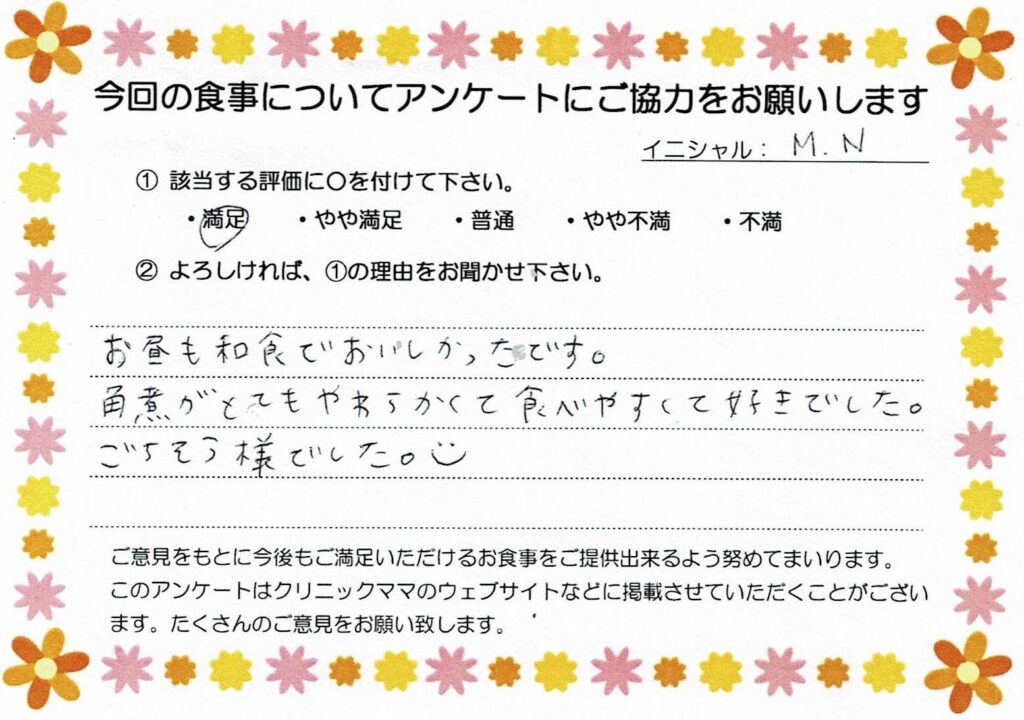 今回の食事についてアンケートにご協力をお願いします
イニシャル： M.N
① 該当する評価に〇を付けて下さい。
・満足 ・やや満足 ・普通 ・やや不満 ・不満
② よろしければ、①の理由をお聞かせ下さい。
お昼も和食でおいしかったです。
角煮がとてもやわらかくて食べやすくて好きでした。
ごちそう様でした。
ご意見をもとに今後もご満足いただけるお食事をご提供出来るよう努めてまいります。
このアンケートはクリニックママのウェブサイトなどに掲載させていただくことがござい
ます。たくさんのご意見をお願い致します。